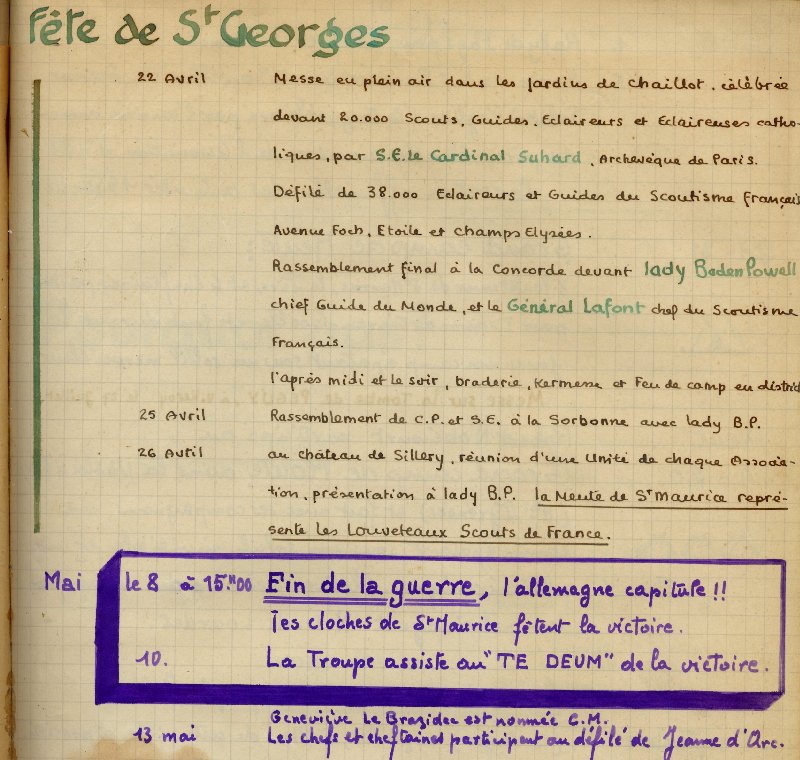 Fête de St Georges
22 Avril Messe en plein air dans les jardins de Chaillot, célébrée
devant 20.000 Scouts, Guides, Eclaireurs et Eclaireuses catho-
liques, par S.E. le Cardinal Suhard, Archevêque de Paris.
Défilé de 38.000 Eclaireurs et Guides du Scoutisme Français
Avenue Foch, Etoile et Champs Elysées.
Rassemblement final à la Concorde devant lady Baden Powell
chief Guide du Monde, et le Général Lafont chef du Scoutisme
Français.
l'après midi et le soir, braderie, Kermesse et Feu de camp en district
25 Avril Rassemblement de C.P. et S.E. à la Sorbonne avec lady B.P.
26 Avril au château de Sillery, réunion d'une Unité de chaque Associa-
tion, présentation à lady B.P. la Meute de St Maurice repré-
sente les Louveteaux Scouts de France.
Mai le 8 à 15.H00 Fin de la guerre, l'allemagne capitule !!
Les cloches de St Maurice fêtent la victoire.
10. La Troupe assiste au "TE DEUM" de la victoire.
Geneviève Le Brazidec est nommée C.M.
13 mai Les chefs et cheftaines participent au défilé de Jeanne d'Arc.